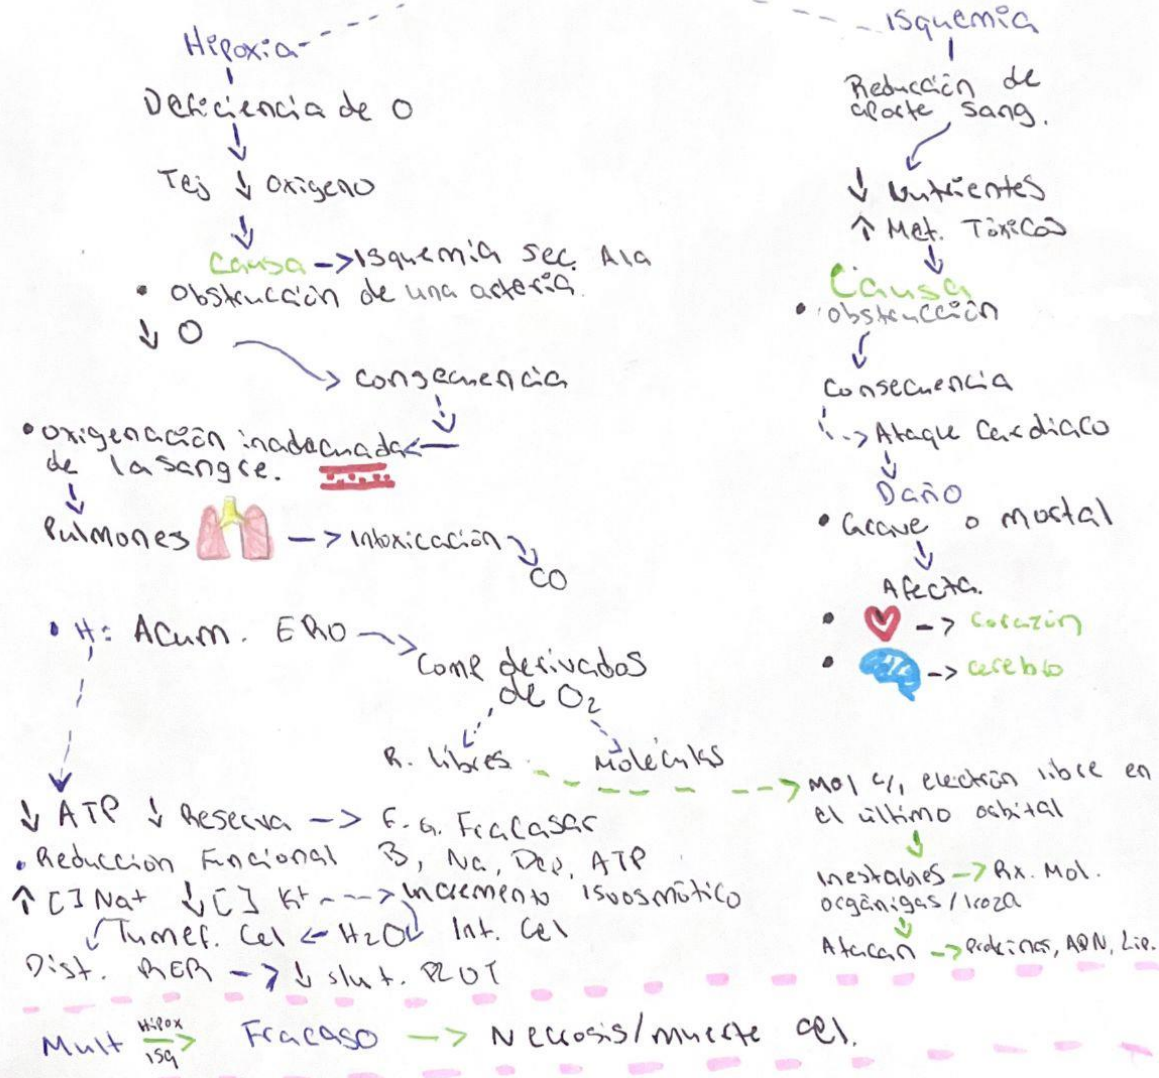 Hipoxia
Deficiencia de O
Tej ↓ oxigeno
Causa -> Isquemia sec. Ala
• obstrucción de una arteria.
↓ O
Consecuencia
• oxigenación inadecuada
de la sangre.
Pulmones -> Intoxicación
CO
• H: Acum. ERO
Comp derivados
de O₂
R. libres
Moléculas
↓ ATP ↓ Reserva -> F. G. Fracasar
• Reduccion Funcional B, Na, Dep, ATP
↑ [] Na+ ↓ [] K+ ---> Incremento isoosmótico
Tumef. Cel <- H2O Int. Cel
Dist. RER -> ↓ sínt. PROT
Isquemia
Reducción de
aporte sang.
↓ Nutrientes
↑ Met. Tóxicos
Causa
• obstrucción
Consecuencia
Ataque Cardiaco
Daño
• Grave o mortal
Afecta.
• -> corazón
• -> cerebro
Mol c/, electrón libre en
el último orbital
Inestables -> Rx. Mol.
orgánigas/
Atacan -> Proteínas, ADN, Lip.
Mult Hipox
Isq
Fracaso -> Necrosis/muerte cel.